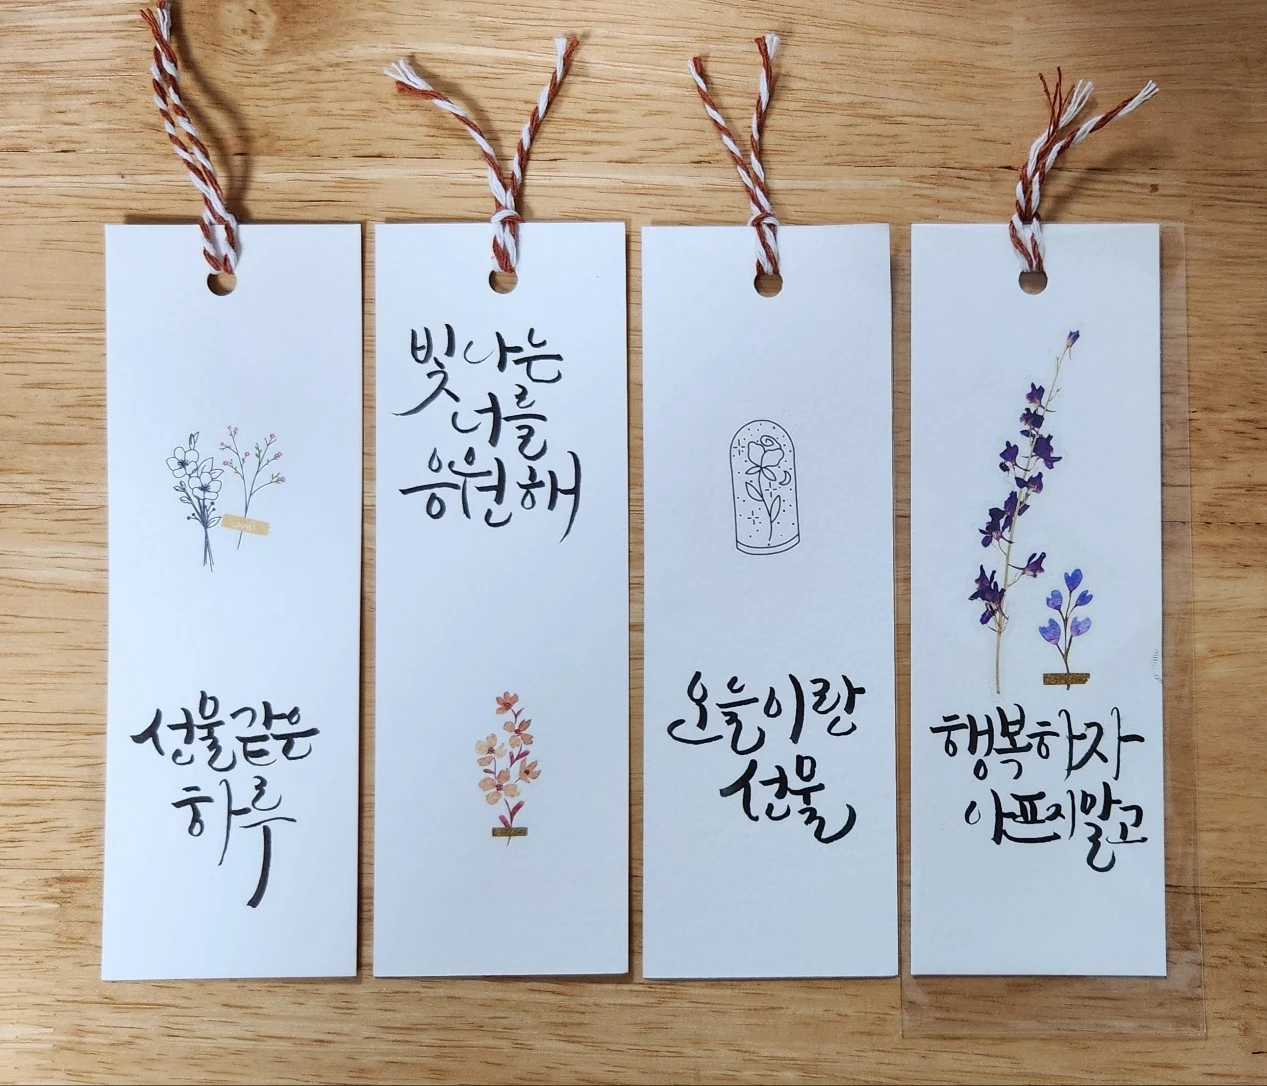 선물같은
하루
빛나는
너를
응원해
오늘이란
선물
행복하자
아프지말고